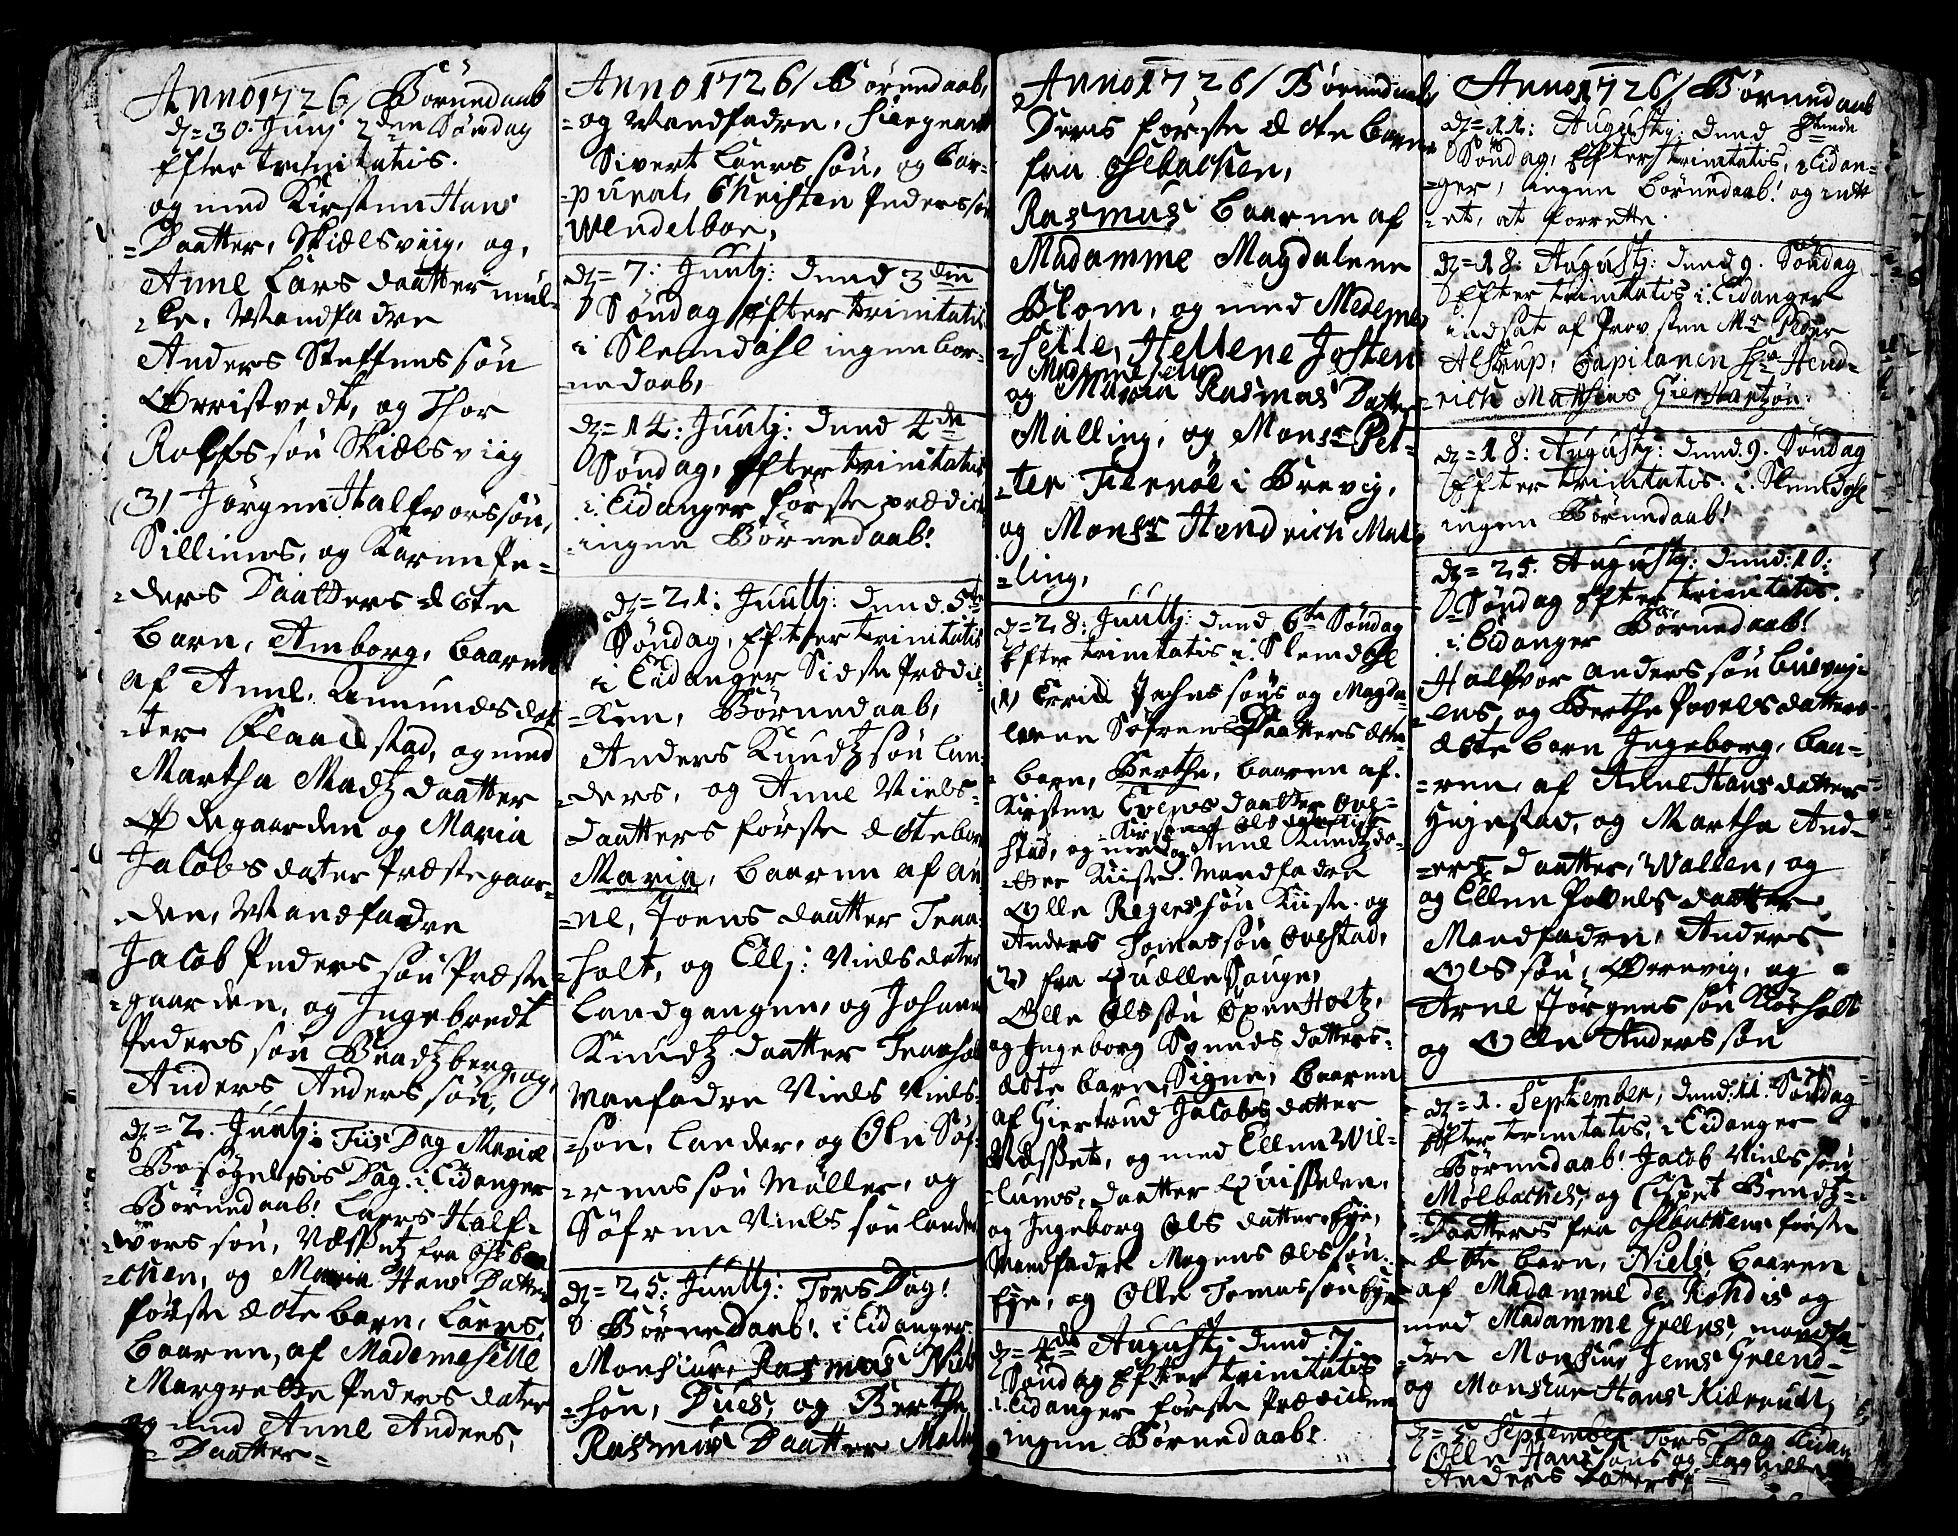 Anno 1726 / Börnedaab
dz= 30. Junj 2den Söndag
Efter trinitatis.
og med Kirsten Hans
=Daatter, Skielsviig, og,
Anne Lars daatter mül-
=le, Mandfadre
Anders Steffens sön
Örristvedt, og Thor
Rolfs sön Skielsviig
(3) Jörgen Halfvors sön,
Silliens, og Karen Pe=
=ders Daatters Echte
barn, Amborg, baaren
af Anne Amunds dat
=ter Flaadstad, og med
Martha Madtz daatter
Ödegaarden og Maria
Jacobs dater Præstegaar-
=den, Mandfadre
Jacob Peders sön Præste
=gaarden, og Ingebredt
Peders sön Bradtzberg, og,
Anders Anders sön,
dz= 2. Juulj: Tiis Dag Mariæ
Besögelsis Dag. i Eidanger
Börnedaab! Laers Half-
=vors sön, Næssetz fra Ohlba
=chen, og Maria Hans Datters
förste Echte barn, Laers,
baaren, af Mademeselle
Margrethe Peders dater
og med Anne Anders,
=Daatter=
Anno 1726 / Börnedaab,
=og Mandfadre, Siergeant
Sivert Laers sön, og Cor-
=pural Christen Peders sön
Wendelboe,
dz= 7: Juulj: dend 3din
Söndag Efter trinitatis
i Slemdahl ingen bör-
=nedaab,
dz= 14: Juulj: dend 4de
Söndag, Efter trinitatis
i Eidanger förste prædick
ingen Börnedaab!
dz= 21: Juulj: dend 5te
Söndag, Efter trinitatis
i Eidanger Sidste Prædi=
=ken, Börnedaab,
Anders Knudtz sön Lan
=ders, og Anne Niels-
daatters förste Echte barn
Maria, baaren af An
=ne, Joens daatter Tran
=holt, og Ellj: Niels dater
Landgangen, og Johanne
Knudtz daatter Tranholt
Manfadre Niels Niels-
=sön, Lander, og Ole Söf-
=rens sön Müller, og
Söfren Niels sön Lander
dz= 25: Juulj: Tors Dag!
Börnedaab! i Eidanger
Monsieur Rasmus Niels
=sön, Dues, og Berthe
Rasmus Daatter Malling
Anno 1726 / Börnedaab
Deris förste Echte barn
fra Ohlbachen,
Rasmus baaren af
Madamme Magdalene
Blom, og med Mademe,
=selle, Hellene Josten
Mademeselle
og Maria Rasmus Datter
Malling, og Monsr Pet-
=ter Tiernöe i Brevig,
og Monsr Hendrich Mal
=ling,
dz= 28: Juulj: dend 6te Söndag
Efter trinitatis i Slemdahl
(1) Errich Jachns söns og Magda
lene Söfrens Daatters Echte
barn, Berthe, baaren af
Kirsten Evens daatter Ovl-
Kirsten Ols daatter
stad, og med Anne Knudtz da-
=tter Kiise. Mandfadre
Olle Regers sön Kiise og
Anders Tomas sön Ovlstad,
(2) fra Qvælle Souge,
Olle Ols sön Öxenholtz,
og Ingeborg Svends datters-
Echte barn Signe, baaren
af Giertrud Jacobs datter
Næsset, og med Ellen Wil-
=lums, daatter Qvisselen,
og Ingeborg Ols datter Eje,
Mandfadre Mogens Ols sön
Eje, og Olle Tomas sön Eje
dz= 4de Augustj dend 7.
Söndag Efter trinitatis
i Eidanger förste Prædicken
ingen Börnedaab!
Anno 1726 / Börnedaab
dz= 11: Augustj: dend 8tende
Söndag, Efter trinitatis, i Eidan-
=ger, ingen börnedaab! og intt
=et, at forrette.
dz= 18: Augustj: dend 9. Söndag
Efter trinitatis i Eidanger
indsat af Provsten Mr Peder
Alstrup, Capilanen Hr Hend-
rich Matthias Gierhartzön.
dz= 18: Augustj: dend 9. Söndag
Efter trinitatis. i Slemdahl
ingen Börnedaab!
dz= 25. Augustj: dend: 10:
Söndag Efter trinitatis.
i Eidanger Börnedaab!
Halfvor Anders sön
=lens, og Berthe Povels datters
Echte barn Ingeborg, baa=
=ren af Anne Hans datter
Hejestad, og Martha And-
=ers daatter, Wallen, og
og Ellen Povels daatter
Mandfadre, Anders
Ols sön, Örrevig, og
Arne Jörgens sön Nörholt
og Olle Anders sön
dz= 1. September, dend. 11. Söndag
Efter trinitatis, i Eidanger
Börnedaab! Jacob Niels sön
Mölbachs, og Lisbet Bendtz-
=Daatters fra Ohlbachens förste
Echte barn, Niels baaren
af Madamme de Röhdis og
med Madamme Gelles, mandfa
=dre Monsiur Jens Gelend-
og Monsiur Hans Kiærrulf,
dz= 5. September Tors Dag Eidan
Olle Hans söns og
Anders Datters, =